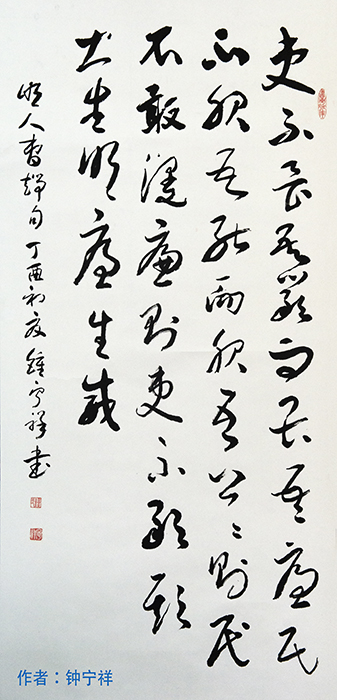 吏不畏吾嚴而畏吾廉民
不服吾能而服吾公々則民
不敢慢廉則吏不敢欺
公生明廉生威
明人曹端句丁酉初夏鍾寧祥書
作者：钟宁祥